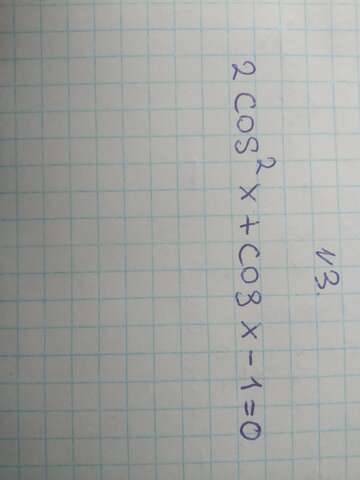 №3.
2 cos² x + cos x - 1 = 0